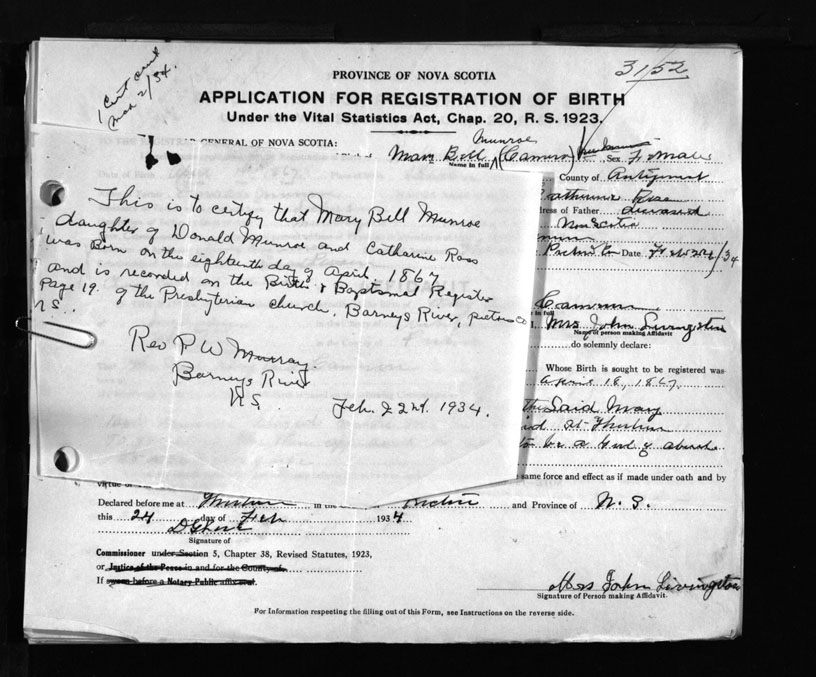 1 Cert sent
Mar 2/34.
3152
PROVINCE OF NOVA SCOTIA
APPLICATION FOR REGISTRATION OF BIRTH
Under the Vital Statistics Act, Chap. 20, R. S. 1923.
GENERAL OF NOVA SCOTIA:
Munroe
Mary Bell (Cameron) Sex Female
Name in full
County of Antigonish
Catharine Ross
dress of Father deceased
Nova Scotia
Pictou Co Date Feb 24/34
This is to certify that Mary Bell Munroe
daughter of Donald Munroe and Catharine Ross
was born on the eighteenth day of April. 1867
and is recorded on the Birth & Baptismal Register
Page 19. of the Presbyterian church. Barneys River, Pictou Co
N.S..
Rev P W Murray.
Barneys River
N.S.
Feb. 22nd. 1934.
Cameron
in full
Mrs John Livingston
Name of person making Affidavit
do solemnly declare:
Whose Birth is sought to be registered was
April 18, 1867.
the Said Mary
same force and effect as if made under oath and by
virtue of
Declared before me at in the Pictou and Province of N. S.
this 24 day of Feb 1934
Signature of
Commissioner under Section 5, Chapter 38, Revised Statutes, 1923,
or Justice of the Peace in and for the County of
If sworn before a Notary Public affix seal.
Mrs John Livingston
Signature of Person making Affidavit.
For Information respecting the filling out of this Form, see Instructions on the reverse side.